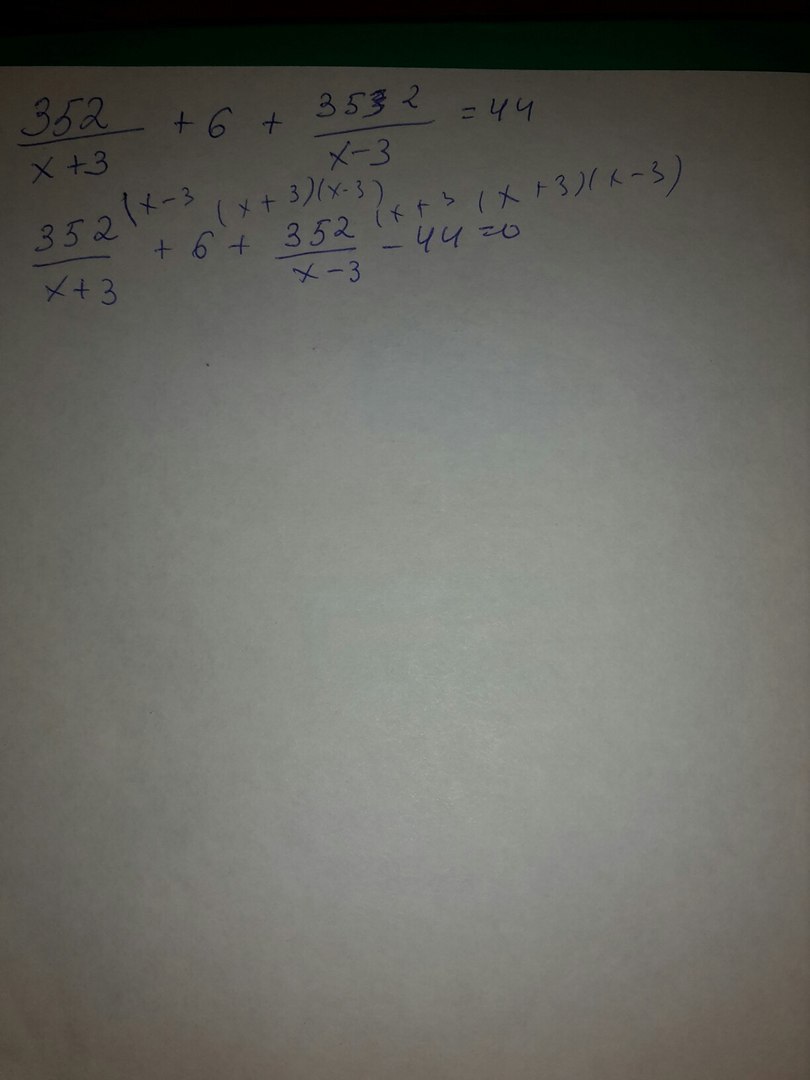 352/(x+3) + 6 + 352/(x-3) = 44
(x-3 (x+3)(x-3) (x+3 (x+3)(x-3)
352/(x+3) + 6 + 352/(x-3) - 44 = 0